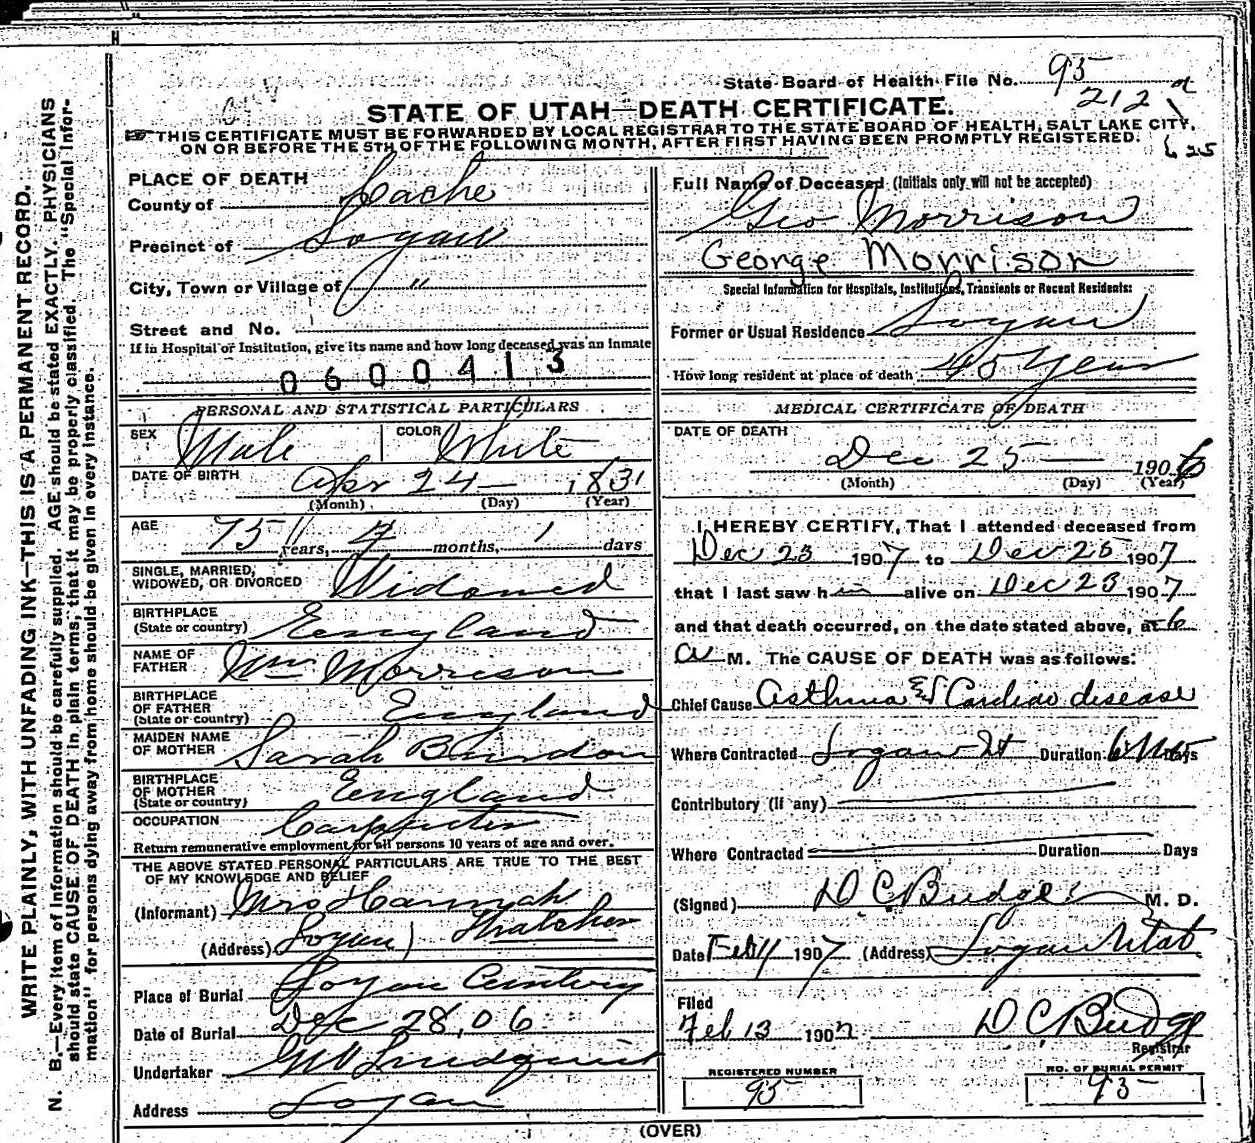 State Board of Health File No. 95
212
STATE OF UTAH—DEATH CERTIFICATE.
THIS CERTIFICATE MUST BE FORWARDED BY LOCAL REGISTRAR TO THE STATE BOARD OF HEALTH, SALT LAKE CITY,
ON OR BEFORE THE 5TH OF THE FOLLOWING MONTH, AFTER FIRST HAVING BEEN PROMPTLY REGISTERED.
25
WRITE PLAINLY, WITH UNFADING INK—THIS IS A PERMANENT RECORD.
N. B.—Every item of information should be carefully supplied. AGE should be stated EXACTLY. PHYSICIANS
should state CAUSE OF DEATH in plain terms, that it may be properly classified. The "Special Infor-
mation" for persons dying away from home should be given in every instance.
PLACE OF DEATH
County of Cache
Precinct of Logan
City, Town or Village of "
Street and No.
If in Hospital or Institution, give its name and how long deceased was an inmate
0600413
PERSONAL AND STATISTICAL PARTICULARS
SEX Male COLOR White
DATE OF BIRTH Apr 24 1831
(Month) (Day) (Year)
AGE 75 years, months, 1 days
SINGLE, MARRIED,
WIDOWED, OR DIVORCED Widowed
BIRTHPLACE
(State or country) England
NAME OF
FATHER Wm Morrison
BIRTHPLACE
OF FATHER
(State or country) England
MAIDEN NAME
OF MOTHER Sarah
BIRTHPLACE
OF MOTHER
(State or country) England
OCCUPATION Carpenter
Return remunerative employment for all persons 10 years of age and over.
THE ABOVE STATED PERSONAL PARTICULARS ARE TRUE TO THE BEST
OF MY KNOWLEDGE AND BELIEF
(Informant) Mrs Hannah Thatcher
(Address) Logan
Place of Burial Logan Cemetery
Date of Burial Dec 28, 06
Undertaker Lindquist
Address Logan
Full Name of Deceased (Initials only will not be accepted)
Geo Morrison
George Morrison
Special Information for Hospitals, Institutions, Transients or Recent Residents:
Former or Usual Residence Logan
How long resident at place of death 45 Years
MEDICAL CERTIFICATE OF DEATH
DATE OF DEATH
Dec 25 1906
(Month) (Day) (Year)
I HEREBY CERTIFY, That I attended deceased from
Dec 23 1907 to Dec 25 1907
that I last saw him alive on Dec 23 1907
and that death occurred, on the date stated above, at 6
a M. The CAUSE OF DEATH was as follows:
Chief Cause Asthma & Cardiac disease
Where Contracted Logan Ut Duration 6 Mos Days
Contributory (if any)
Where Contracted Duration Days
(Signed) D C Budge M. D.
Date Feb 11 1907 (Address) Logan Utah
Filed
Feb 13 1907 D C Budge
Registrar
REGISTERED NUMBER
95
NO. OF BURIAL PERMIT
93
(OVER)